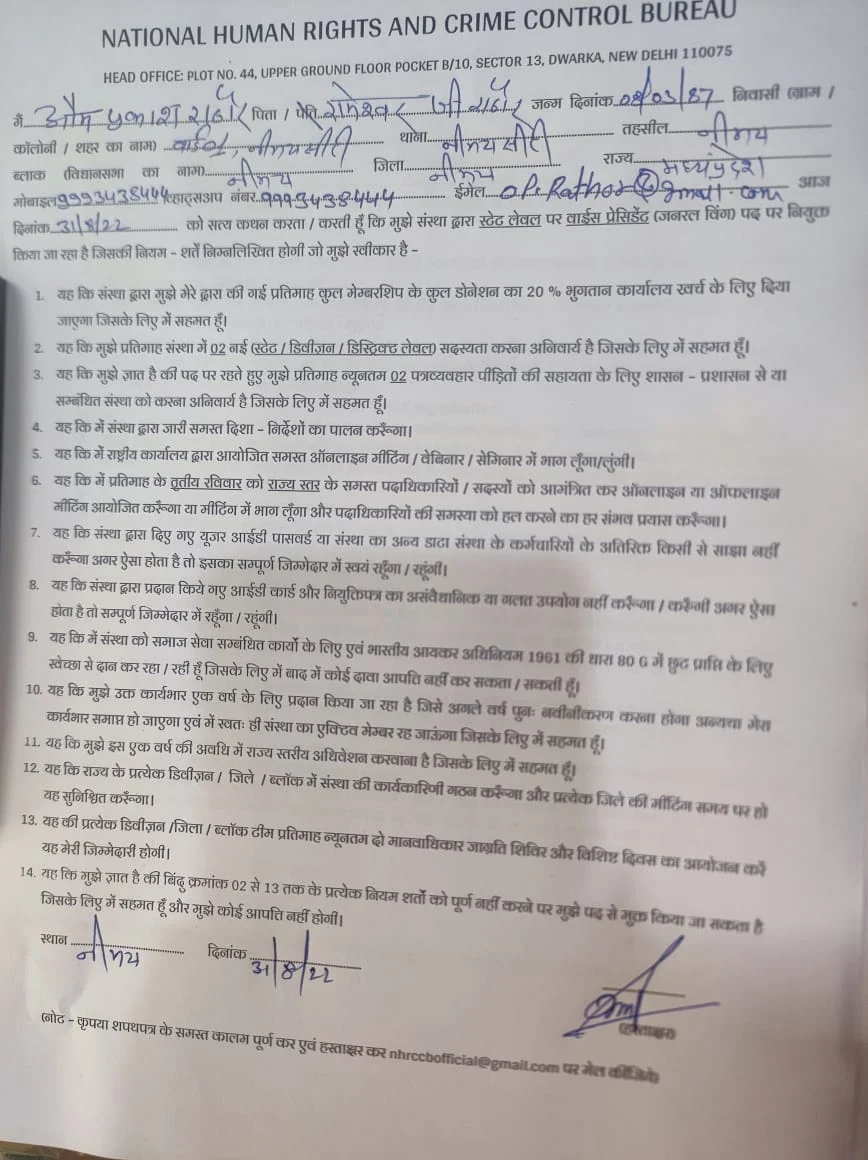 NATIONAL HUMAN RIGHTS AND CRIME CONTROL BUREAU
HEAD OFFICE: PLOT NO. 44, UPPER GROUND FLOOR POCKET B/10, SECTOR 13, DWARKA, NEW DELHI 110075
मैं ओम प्रकाश राठौर पिता / पति रामेश्वर जी राठौर जन्म दिनांक 08/03/87 निवासी (ग्राम /
कॉलोनी / शहर का नाम) नीमच सीटी थाना नीमच सीटी तहसील नीमच
ब्लाक (विधानसभा का नाम) नीमच जिला नीमच राज्य मध्यप्रदेश
मोबाइल 9993438444 व्हाट्सअप नंबर 9993438444 ईमेल O.P.Rathor@gmail.com आज
दिनांक 31/8/22 को सत्य कथन करता / करती हूँ कि मुझे संस्था द्वारा स्टेट लेवल पर वाईस प्रेसिडेंट (जनरल विंग) पद पर नियुक्त
किया जा रहा है जिसकी नियम - शर्तें निम्नलिखित होगी जो मुझे स्वीकार है -
1. यह कि संस्था द्वारा मुझे मेरे द्वारा की गई प्रतिमाह कुल मेम्बरशिप के कुल डोनेशन का 20 % भुगतान कार्यालय खर्च के लिए दिया
जाएगा जिसके लिए में सहमत हूँ।
2. यह कि मुझे प्रतिमाह संस्था में 02 नई (स्टेट / डिवीज़न / डिस्ट्रिक्ट लेवल) सदस्यता करना अनिवार्य है जिसके लिए में सहमत हूँ।
3. यह कि मुझे ज्ञात है की पद पर रहते हुए मुझे प्रतिमाह न्यूनतम 02 पत्रव्यवहार पीड़ितों की सहायता के लिए शासन - प्रशासन से या
सम्बंधित संस्था को करना अनिवार्य है जिसके लिए में सहमत हूँ।
4. यह कि में संस्था द्वारा जारी समस्त दिशा - निर्देशों का पालन करूँगा।
5. यह कि में राष्ट्रीय कार्यालय द्वारा आयोजित समस्त ऑनलाइन मीटिंग / वेबिनार / सेमिनार में भाग लूँगा/लुंगी।
6. यह कि में प्रतिमाह के तृतीय रविवार को राज्य स्तर के समस्त पदाधिकारियों / सदस्यों को आमंत्रित कर ऑनलाइन या ऑफलाइन
मीटिंग आयोजित करूँगा या मीटिंग में भाग लूँगा और पदाधिकारियों की समस्या को हल करने का हर संभव प्रयास करूँगा।
7. यह कि संस्था द्वारा दिए गए यूजर आईडी पासवर्ड या संस्था का अन्य डाटा संस्था के कर्मचारियों के अतिरिक्त किसी से साझा नहीं
करूँगा अगर ऐसा होता है तो इसका सम्पूर्ण जिम्मेदार में स्वयं रहूँगा / रहूंगी।
8. यह कि संस्था द्वारा प्रदान किये गए आईडी कार्ड और नियुक्तिपत्र का असंवैधानिक या गलत उपयोग नहीं करूँगा / करूँगी अगर ऐसा
होता है तो सम्पूर्ण जिम्मेदार में रहूँगा / रहूंगी।
9. यह कि में संस्था को समाज सेवा सम्बंधित कार्यो के लिए एवं भारतीय आयकर अधिनियम 1961 की धारा 80 G में छुट प्राप्ति के लिए
स्वेच्छा से दान कर रहा / रही हूँ जिसके लिए में बाद में कोई दावा आपत्ति नहीं कर सकता / सकती हूँ।
10. यह कि मुझे उक्त कार्यभार एक वर्ष के लिए प्रदान किया जा रहा है जिसे अगले वर्ष पुनः नवीनीकरण करना होगा अन्यथा मेरा
कार्यभार समाप्त हो जाएगा एवं में स्वतः ही संस्था का एक्टिव मेम्बर रह जाऊंगा जिसके लिए में सहमत हूँ।
11. यह कि मुझे इस एक वर्ष की अवधि में राज्य स्तरीय अधिवेशन करवाना है जिसके लिए में सहमत हूँ।
12. यह कि राज्य के प्रत्येक डिवीज़न / जिले / ब्लॉक में संस्था की कार्यकारिणी गठन करूँगा और प्रत्येक जिले की मीटिंग समय पर हो
यह सुनिश्चित करूँगा।
13. यह की प्रत्येक डिवीज़न /जिला / ब्लॉक टीम प्रतिमाह न्यूनतम दो मानवाधिकार जाग्रति शिविर और विशिष्ट दिवस का आयोजन करें
यह मेरी जिम्मेदारी होगी।
14. यह कि मुझे ज्ञात है की बिंदु क्रमांक 02 से 13 तक के प्रत्येक नियम शर्तों को पूर्ण नहीं करने पर मुझे पद से मुक्त किया जा सकता है
जिसके लिए में सहमत हूँ और मुझे कोई आपत्ति नहीं होगी।
स्थान नीमच दिनांक 31/8/22
(हस्ताक्षर)
(नोट - कृपया शपथपत्र के समस्त कालम पूर्ण कर एवं हस्ताक्षर कर nhrccbofficial@gmail.com पर मेल कीजिये)